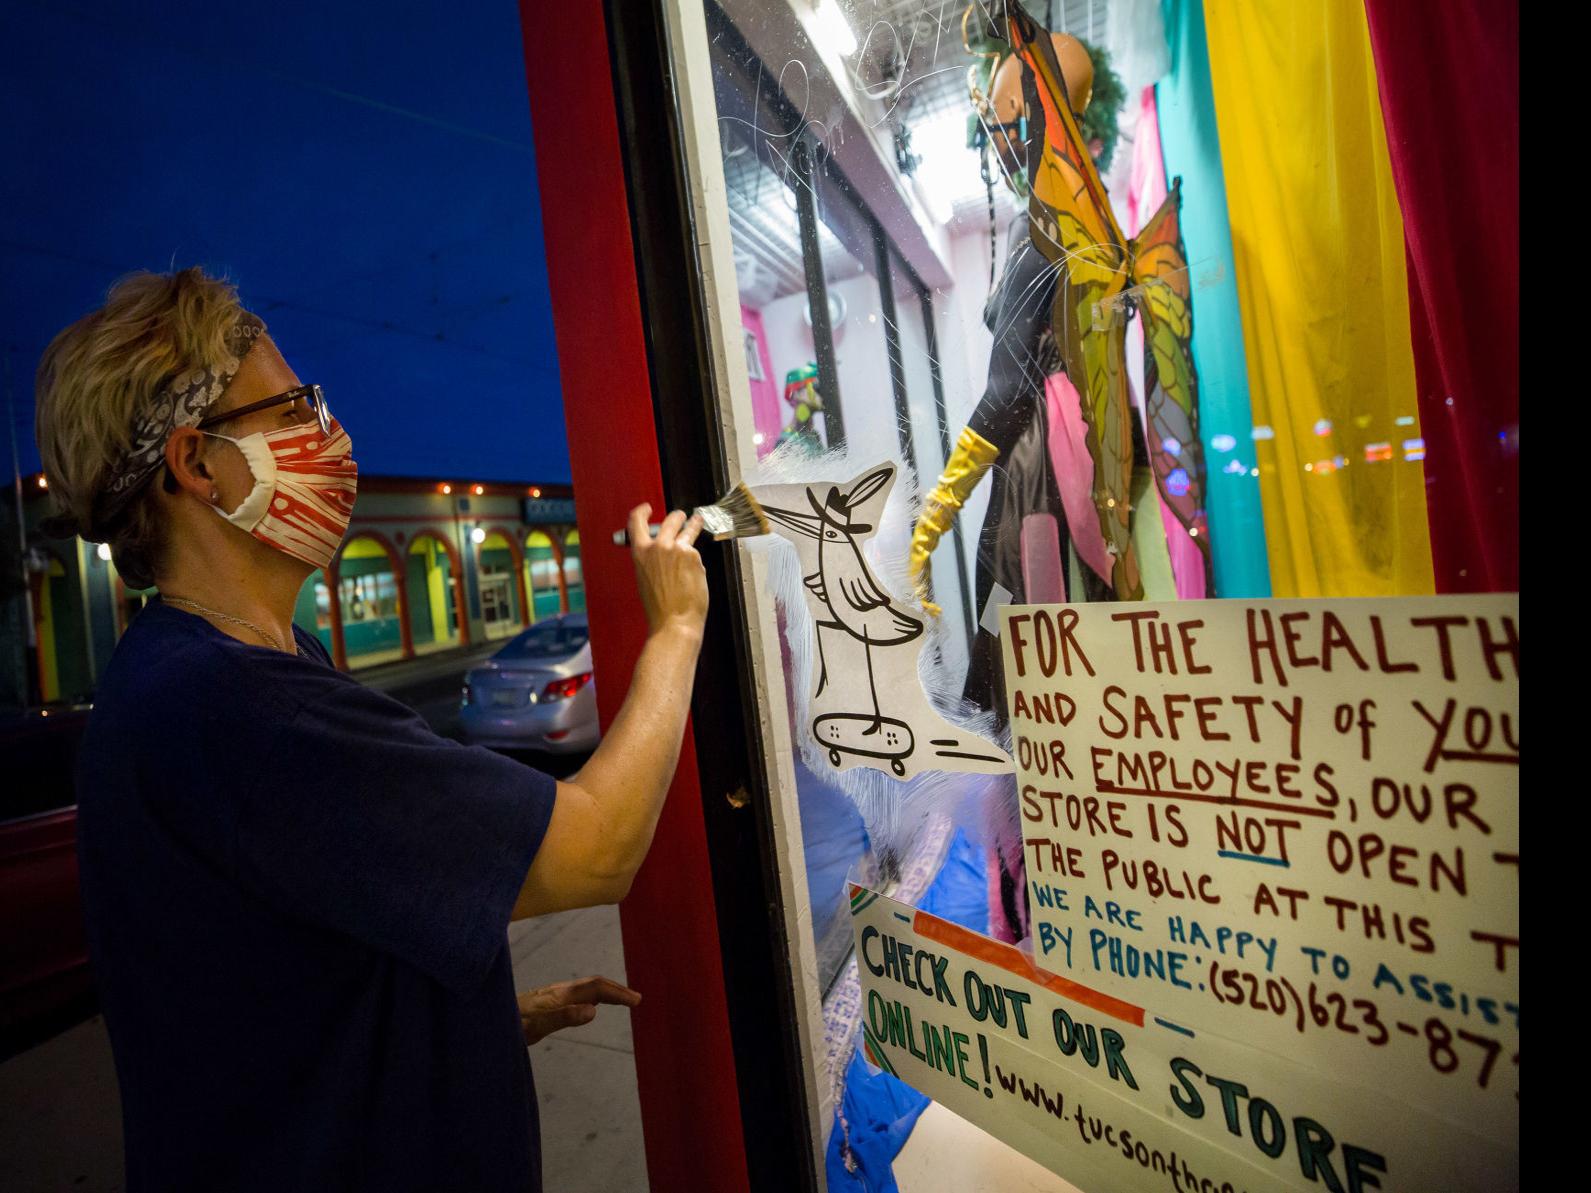 FOR THE HEALTH
AND SAFETY of YOU
OUR EMPLOYEES, OUR
STORE IS NOT OPEN
THE PUBLIC AT THIS
WE ARE HAPPY TO ASSIST
BY PHONE: (520)623-87
CHECK OUT OUR STORE
ONLINE! www.tucsonthr